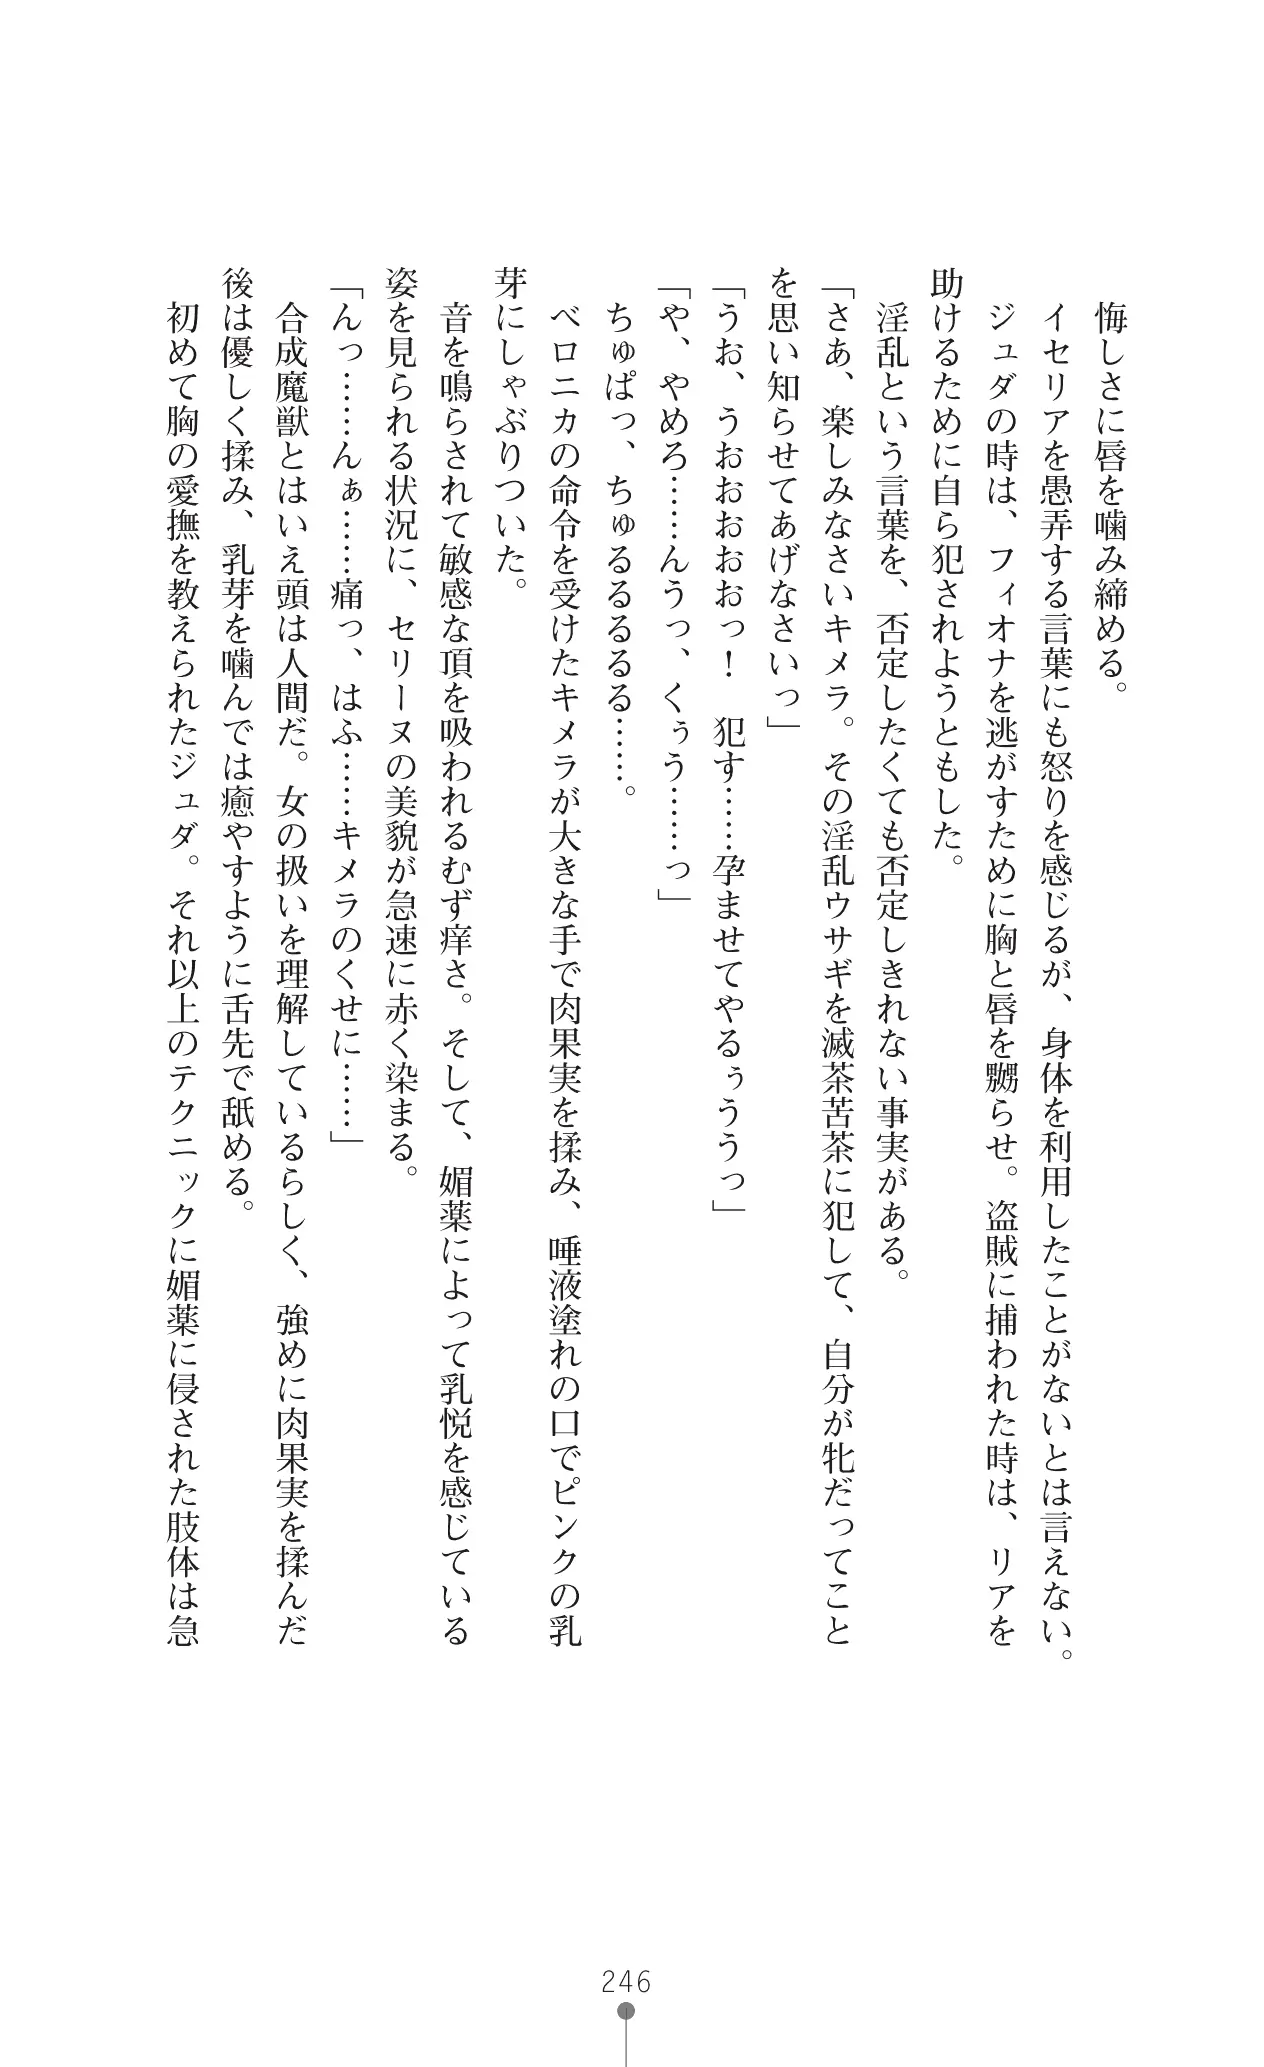 悔しさに唇を噛み締める。
イセリアを愚弄する言葉にも怒りを感じるが、身体を利用したことがないとは言えない。
ジュダの時は、フィオナを逃がすために胸と唇を嬲らせ。盗賊に捕われた時は、リアを
助けるために自ら犯されようともした。
淫乱という言葉を、否定したくても否定しきれない事実がある。
「さあ、楽しみなさいキメラ。その淫乱ウサギを滅茶苦茶に犯して、自分が牝だってこと
を思い知らせてあげなさいっ」
「うお、うおおおおっ！　犯す……孕ませてやるぅううっ」
「や、やめろ……んうっ、くぅう……っ」
ちゅぱっ、ちゅるるるる……。
ベロニカの命令を受けたキメラが大きな手で肉果実を揉み、唾液塗れの口でピンクの乳
芽にしゃぶりついた。
音を鳴らされて敏感な頂を吸われるむず痒さ。そして、媚薬によって乳悦を感じている
姿を見られる状況に、セリーヌの美貌が急速に赤く染まる。
「んっ……んぁ……痛っ、はふ……キメラのくせに……」
合成魔獣とはいえ頭は人間だ。女の扱いを理解しているらしく、強めに肉果実を揉んだ
後は優しく揉み、乳芽を噛んでは癒やすように舌先で舐める。
初めて胸の愛撫を教えられたジュダ。それ以上のテクニックに媚薬に侵された肢体は急
246